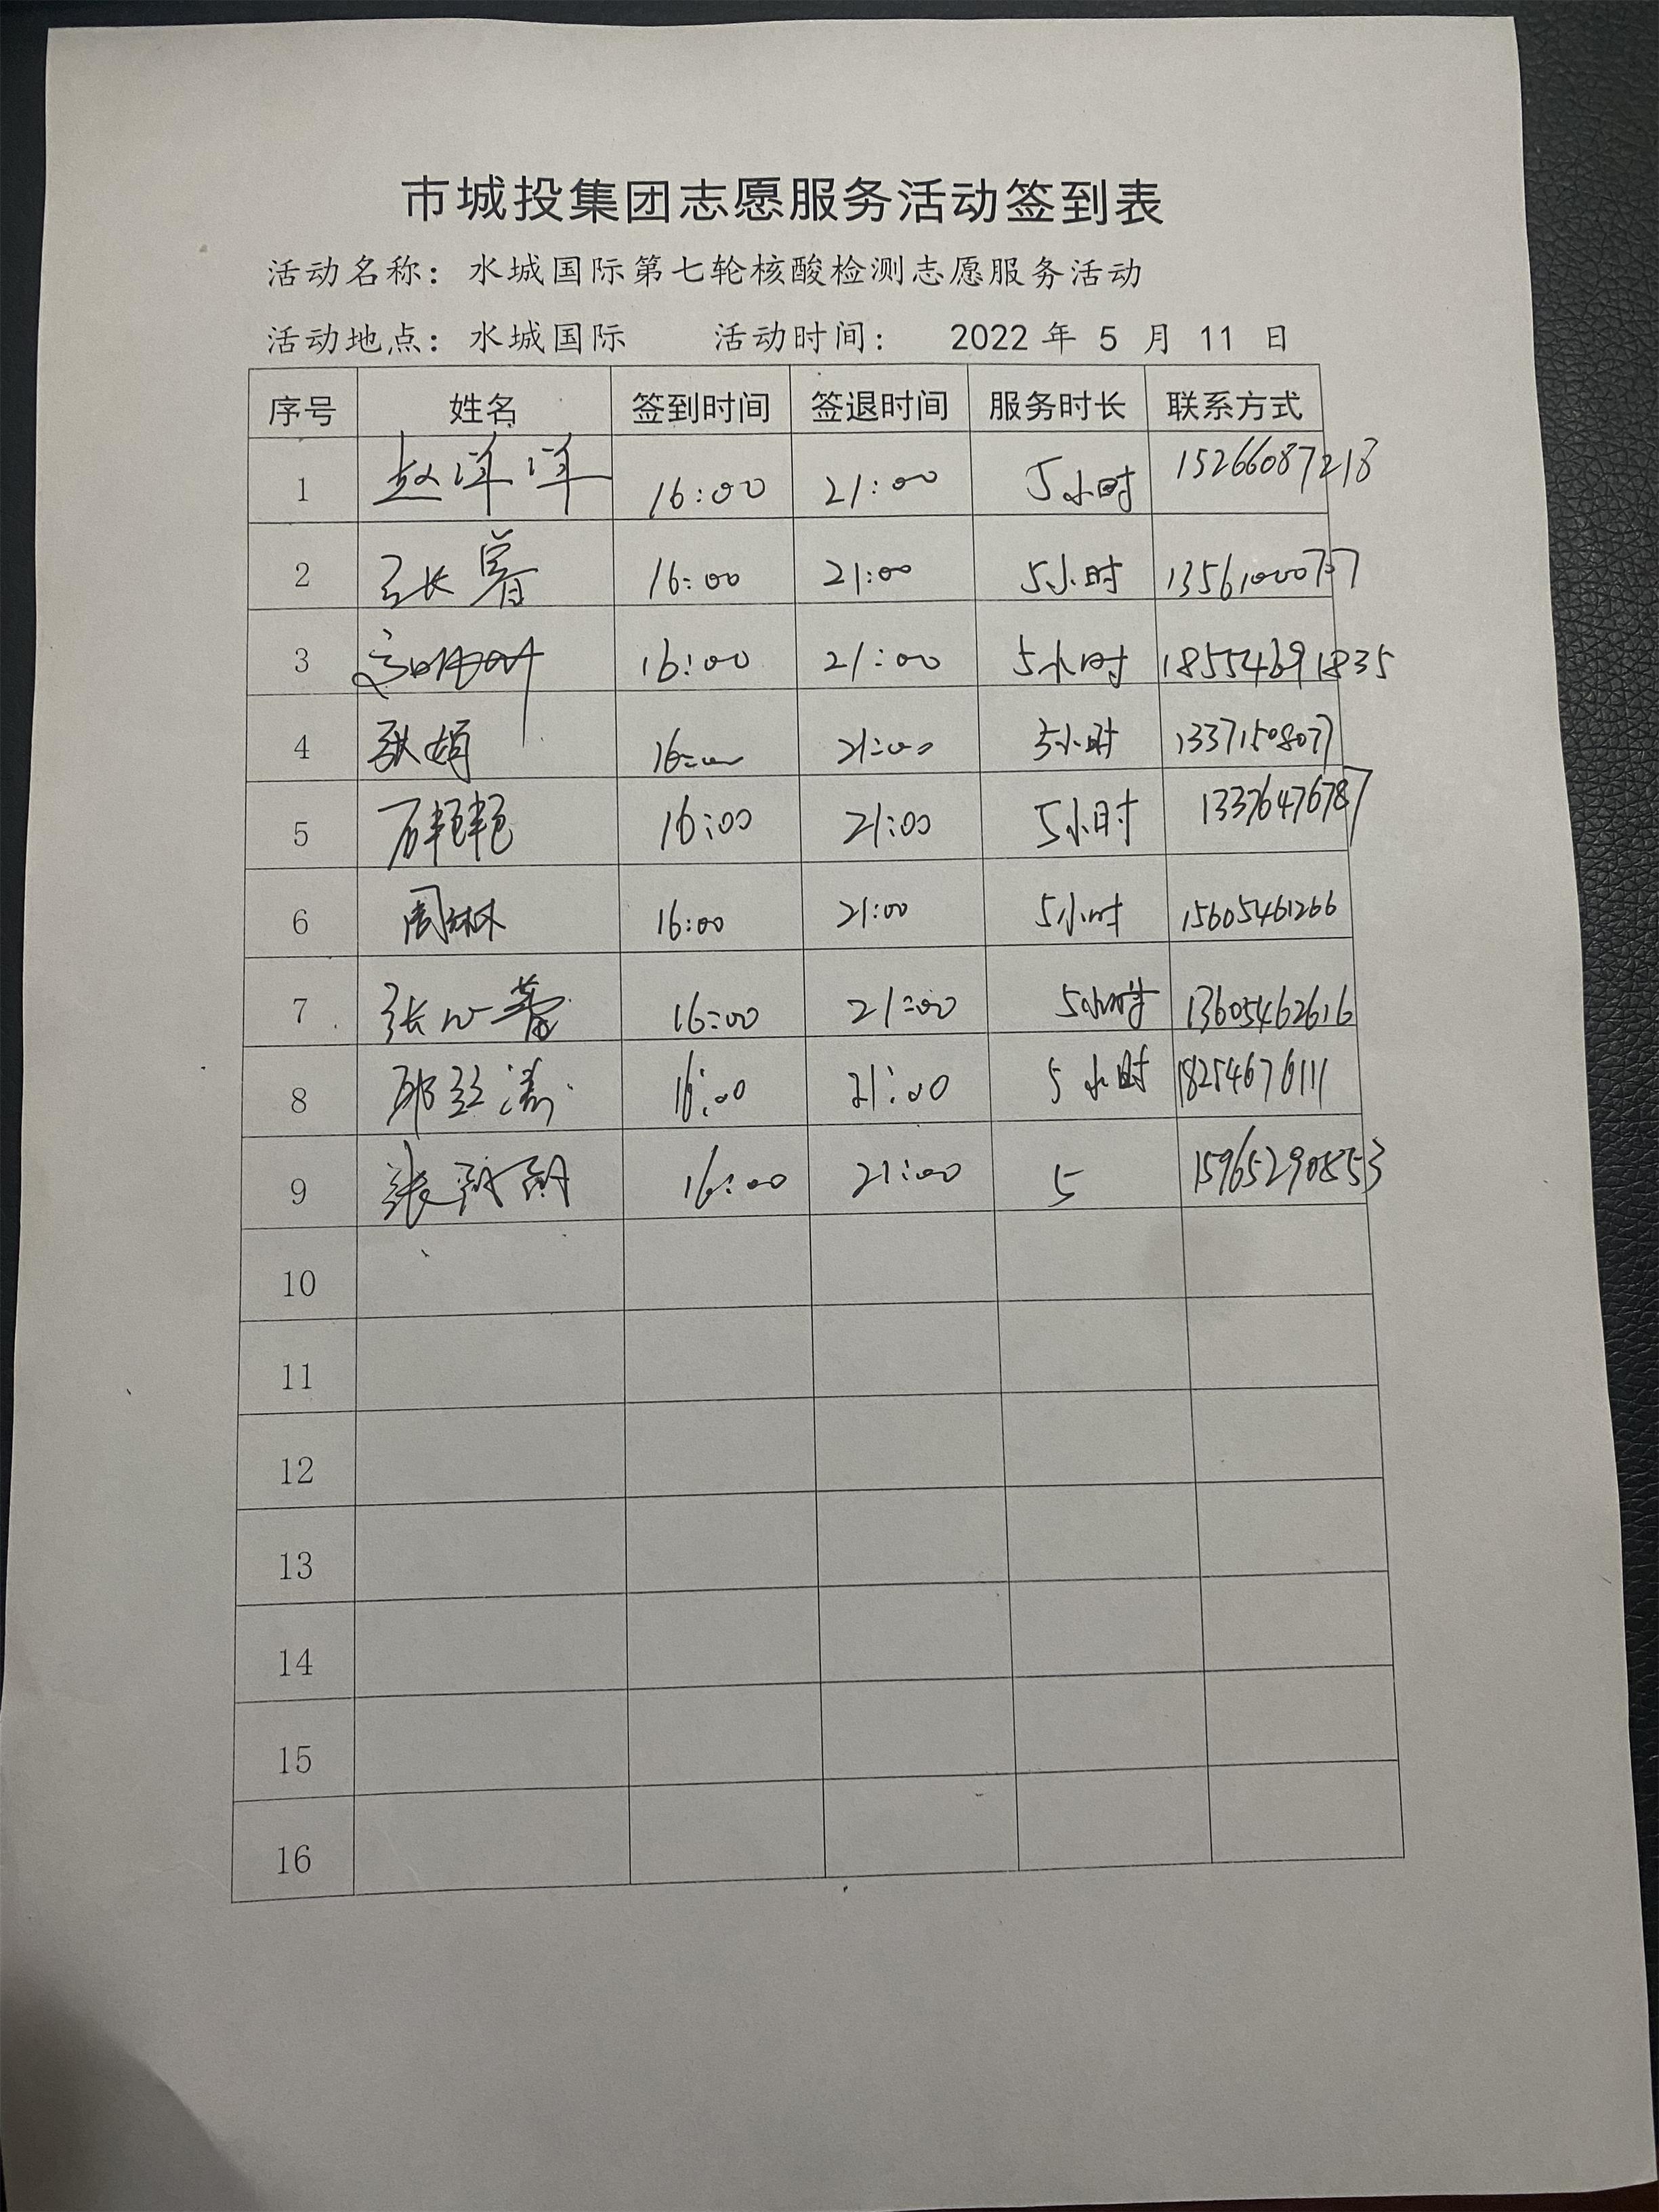 市城投集团志愿服务活动签到表
活动名称：水城国际第七轮核酸检测志愿服务活动
活动地点：水城国际 活动时间： 2022 年 5 月 11 日
序号 姓名 签到时间 签退时间 服务时长 联系方式
1 赵洋洋 16:00 21:00 5小时 15266087218
2 张 16:00 21:00 5小时
3 16:00 21:00 5小时 18554691835
4 耿娟 16:00 21:00 5小时 13371508077
5 万艳艳 16:00 21:00 5小时 13376476787
6 周琳 16:00 21:00 5小时 15605461266
7 张心蕾 16:00 21:00 5小时 13605462616
8 16:00 21:00 5小时 18254676111
9 张 16:00 21:00 5 15965290853
10
11
12
13
14
15
16